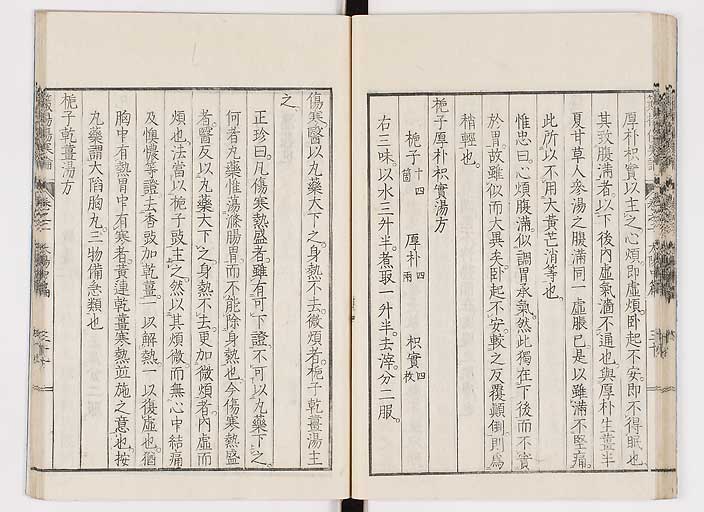 厚朴枳實以主之心煩即虛煩臥起不安即不得眠也
其致腹滿者以下後內虛氣濇不通也與厚朴生薑半
夏甘草人參湯之腹滿同一虛脹已是以雖滿不堅痛
此所以不用大黃芒消等也
惟忠曰心煩腹滿似調胃承氣然此獨在下後而不實
於胃故雖似而大異矣臥起不安較之反覆顛倒則爲
稍輕也
梔子厚朴枳實湯方
梔子十四箇 厚朴四兩 枳實四枚
右三味以水三升半煮取一升半去滓分二服
傷寒醫以丸藥大下之身熱不去微煩者梔子乾薑湯主
之
正珍曰凡傷寒熱盛者雖有可下證不可以丸藥下之
何者丸藥惟蕩滌腸胃而不能除身熱也今傷寒熱盛
者醫反以丸藥大下之身熱不去更加微煩者內虛而
煩也法當以梔子豉主之然以其煩微而無心中結痛
及懊憹等證去香豉加乾薑一以解熱一以復虛也猶
胸中有熱胃中有寒者黃連乾薑寒熱並施之意也按
丸藥謂大陷胸丸三物備急類也
梔子乾薑湯方